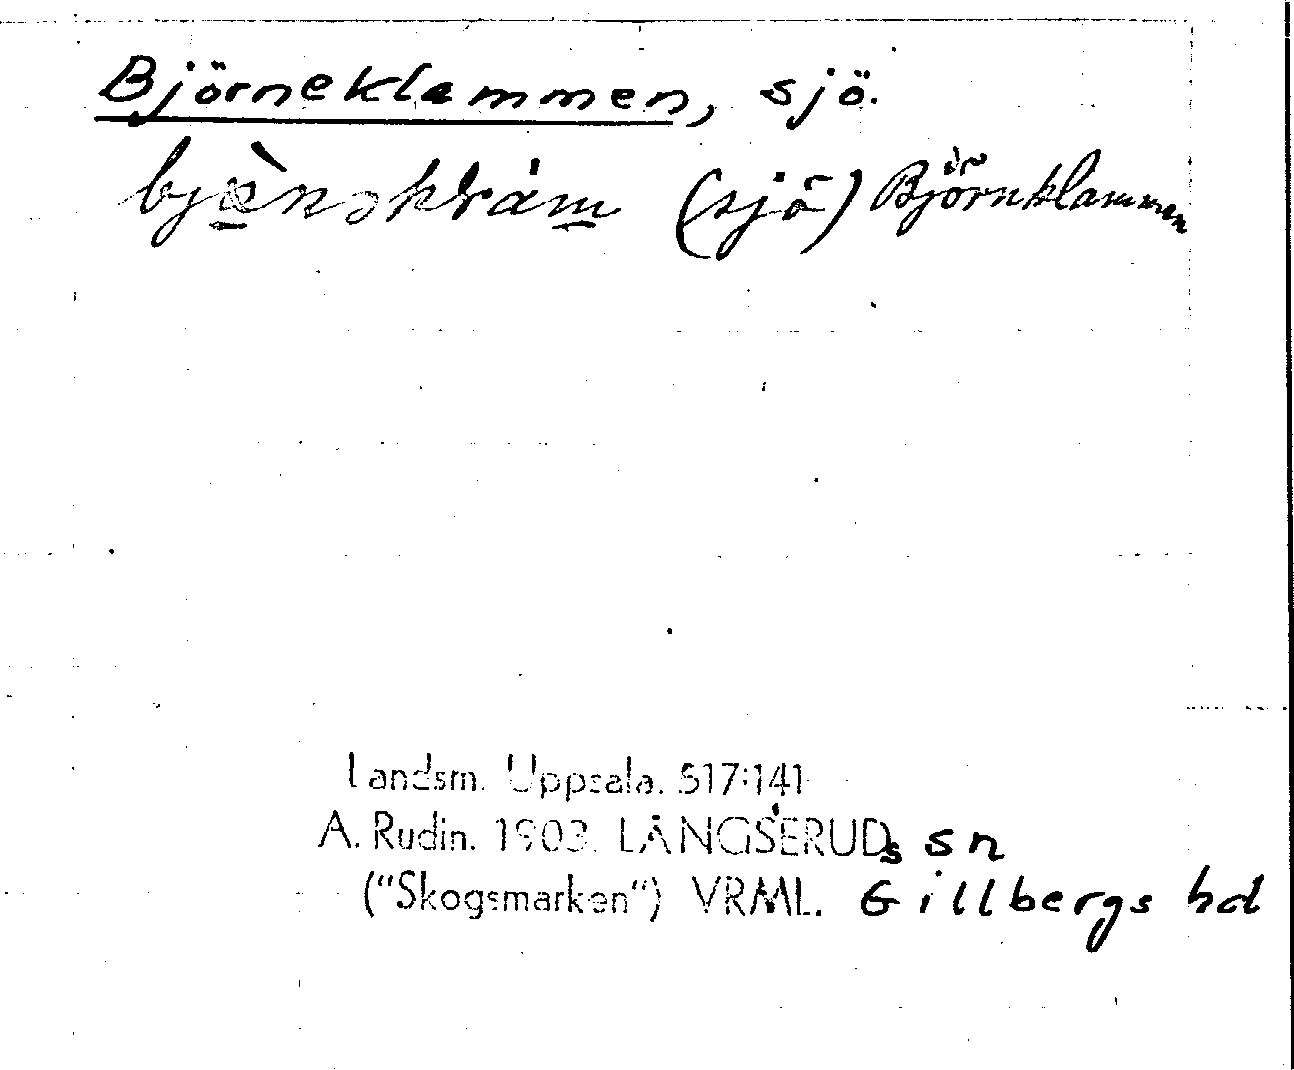 Björneklammen, sjö.
bjὰnəklråm (sjö) Björnklammen
Landsm. Uppsala. 517:141
A. Rudin. 1903. LÅNGSERUDs sn
("Skogsmarken") VRML. Gillbergs hd